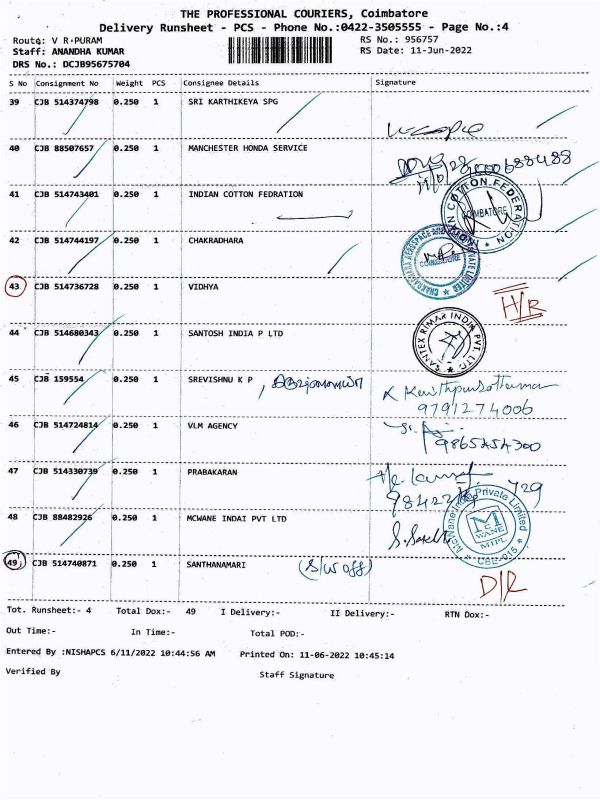 THE PROFESSIONAL COURIERS, Coimbatore
Delivery Runsheet - PCS - Phone No.:0422-3505555 - Page No.:4
Route: V R.PURAM
RS No.: 956757
Staff: ANANDHA KUMAR
RS Date: 11-Jun-2022
DRS No.: DCJB95675704
S No Consignment No Weight PCS Consignee Details Signature
39 CJB 514374798 0.250 1 SRI KARTHIKEYA SPG
40 CJB 88507657 0.250 1 MANCHESTER HONDA SERVICE
41 CJB 514743401 0.250 1 INDIAN COTTON FEDRATION
INDIAN COTTON FEDERATION
COIMBATORE
42 CJB 514744197 0.250 1 CHAKRADHARA
43 CJB 514736728 0.250 1 VIDHYA
H/R
44 CJB 514680343 0.250 1 SANTOSH INDIA P LTD
SANTEX RIMAR INDIA PVT. LTD.
45 CJB 159554 0.250 1 SREVISHNU K P
9791274006
46 CJB 514724814 0.250 1 VLM AGENCY
9865454300
47 CJB 514330739 0.250 1 PRABAKARAN
48 CJB 88482926 0.250 1 MCWANE INDAI PVT LTD
McWane Private Limited
MCWANE
MTPL
CBE-015
49 CJB 514740871 0.250 1 SANTHANAMARI (S/W off)
D/R
Tot. Runsheet:- 4 Total Dox:- 49 I Delivery:- II Delivery:- RTN Dox:-
Out Time:- In Time:- Total POD:-
Entered By :NISHAPCS 6/11/2022 10:44:56 AM Printed On: 11-06-2022 10:45:14
Verified By Staff Signature